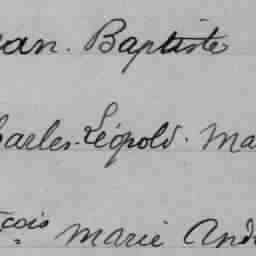 ean. Baptiste
harles. Léopold. Ma
çois marie And